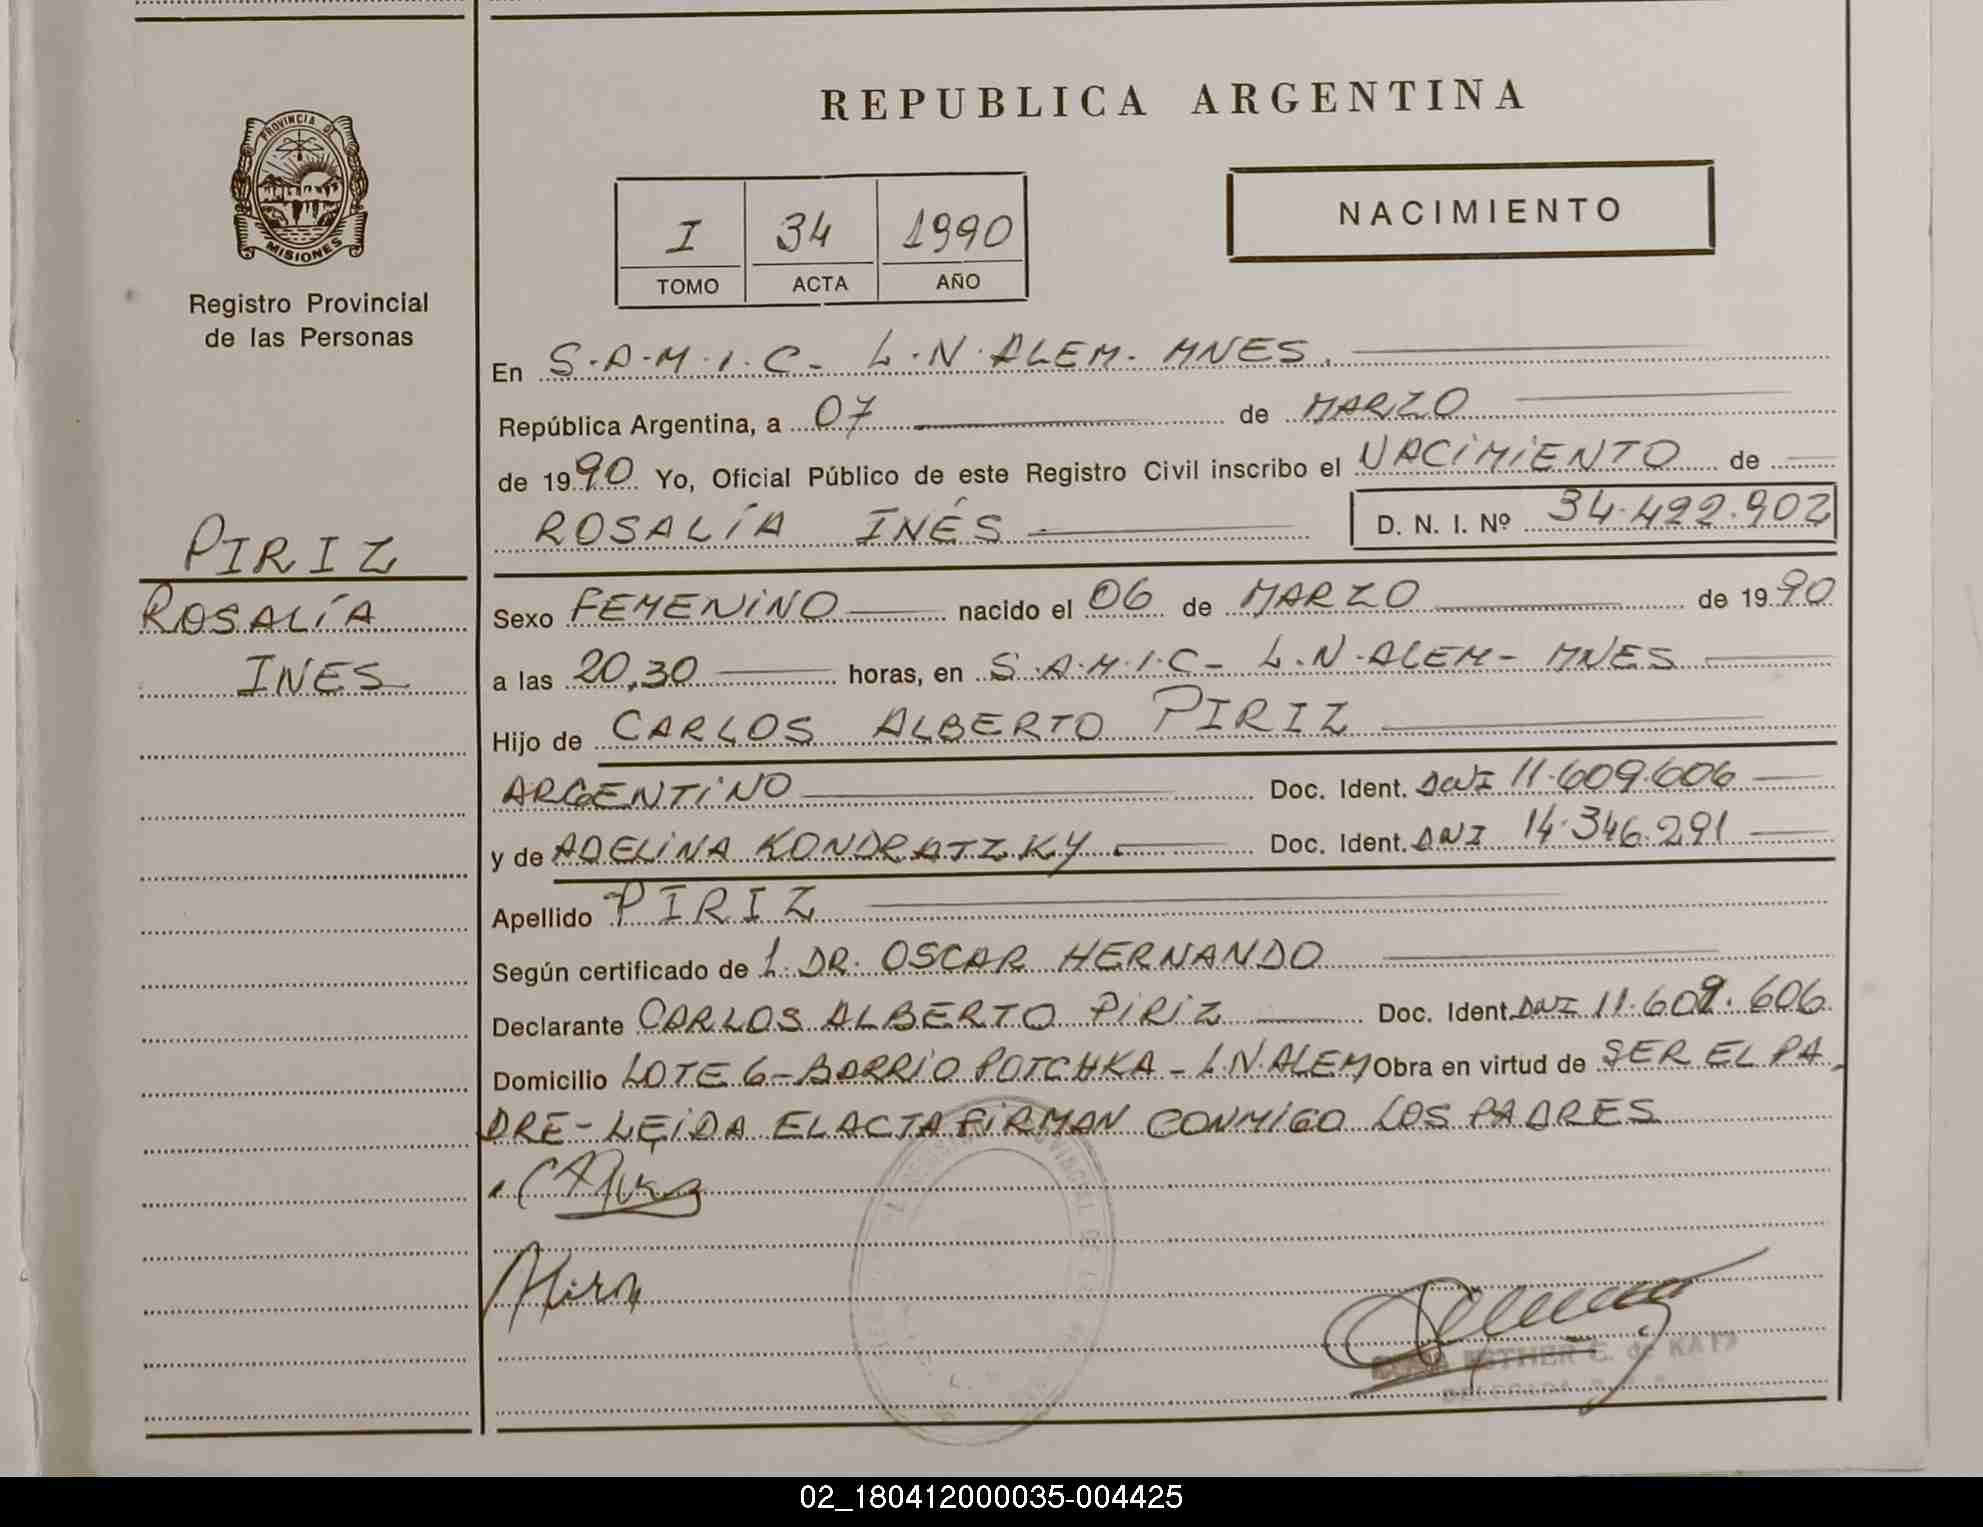 REPUBLICA ARGENTINA
PROVINCIA DE
MISIONES
Registro Provincial
de las Personas
I 34 1990
TOMO ACTA AÑO
NACIMIENTO
En S.A.M.I.C- L.N.ALEM- MNES.
República Argentina, a 07 de MARZO
de 1990 Yo, Oficial Público de este Registro Civil inscribo el NACIMIENTO de
ROSALÍA INÉS D. N. I. Nº 34.492.902
PIRIZ
ROSALÍA
INES
Sexo FEMENINO nacido el 06 de MARZO de 1990
a las 20,30 horas, en S.A.M.I.C- L.N.ALEM- MNES
Hijo de CARLOS ALBERTO PIRIZ
ARGENTINO Doc. Ident. DNI 11.609.606
y de ADELINA KONDRATZKY Doc. Ident. DNI 14.346.291
Apellido PIRIZ
Según certificado de L. DR. OSCAR HERNANDO
Declarante CARLOS ALBERTO PIRIZ Doc. Ident. DNI 11.609.606
Domicilio LOTE 6- BARRIO POTCHKA - L.N.ALEM Obra en virtud de SER EL PA
DRE- LEIDA EL ACTA FIRMAN CONMIGO LOS PADRES
ESTHER C. de KATZ
DELEGADA
02_180412000035-004425